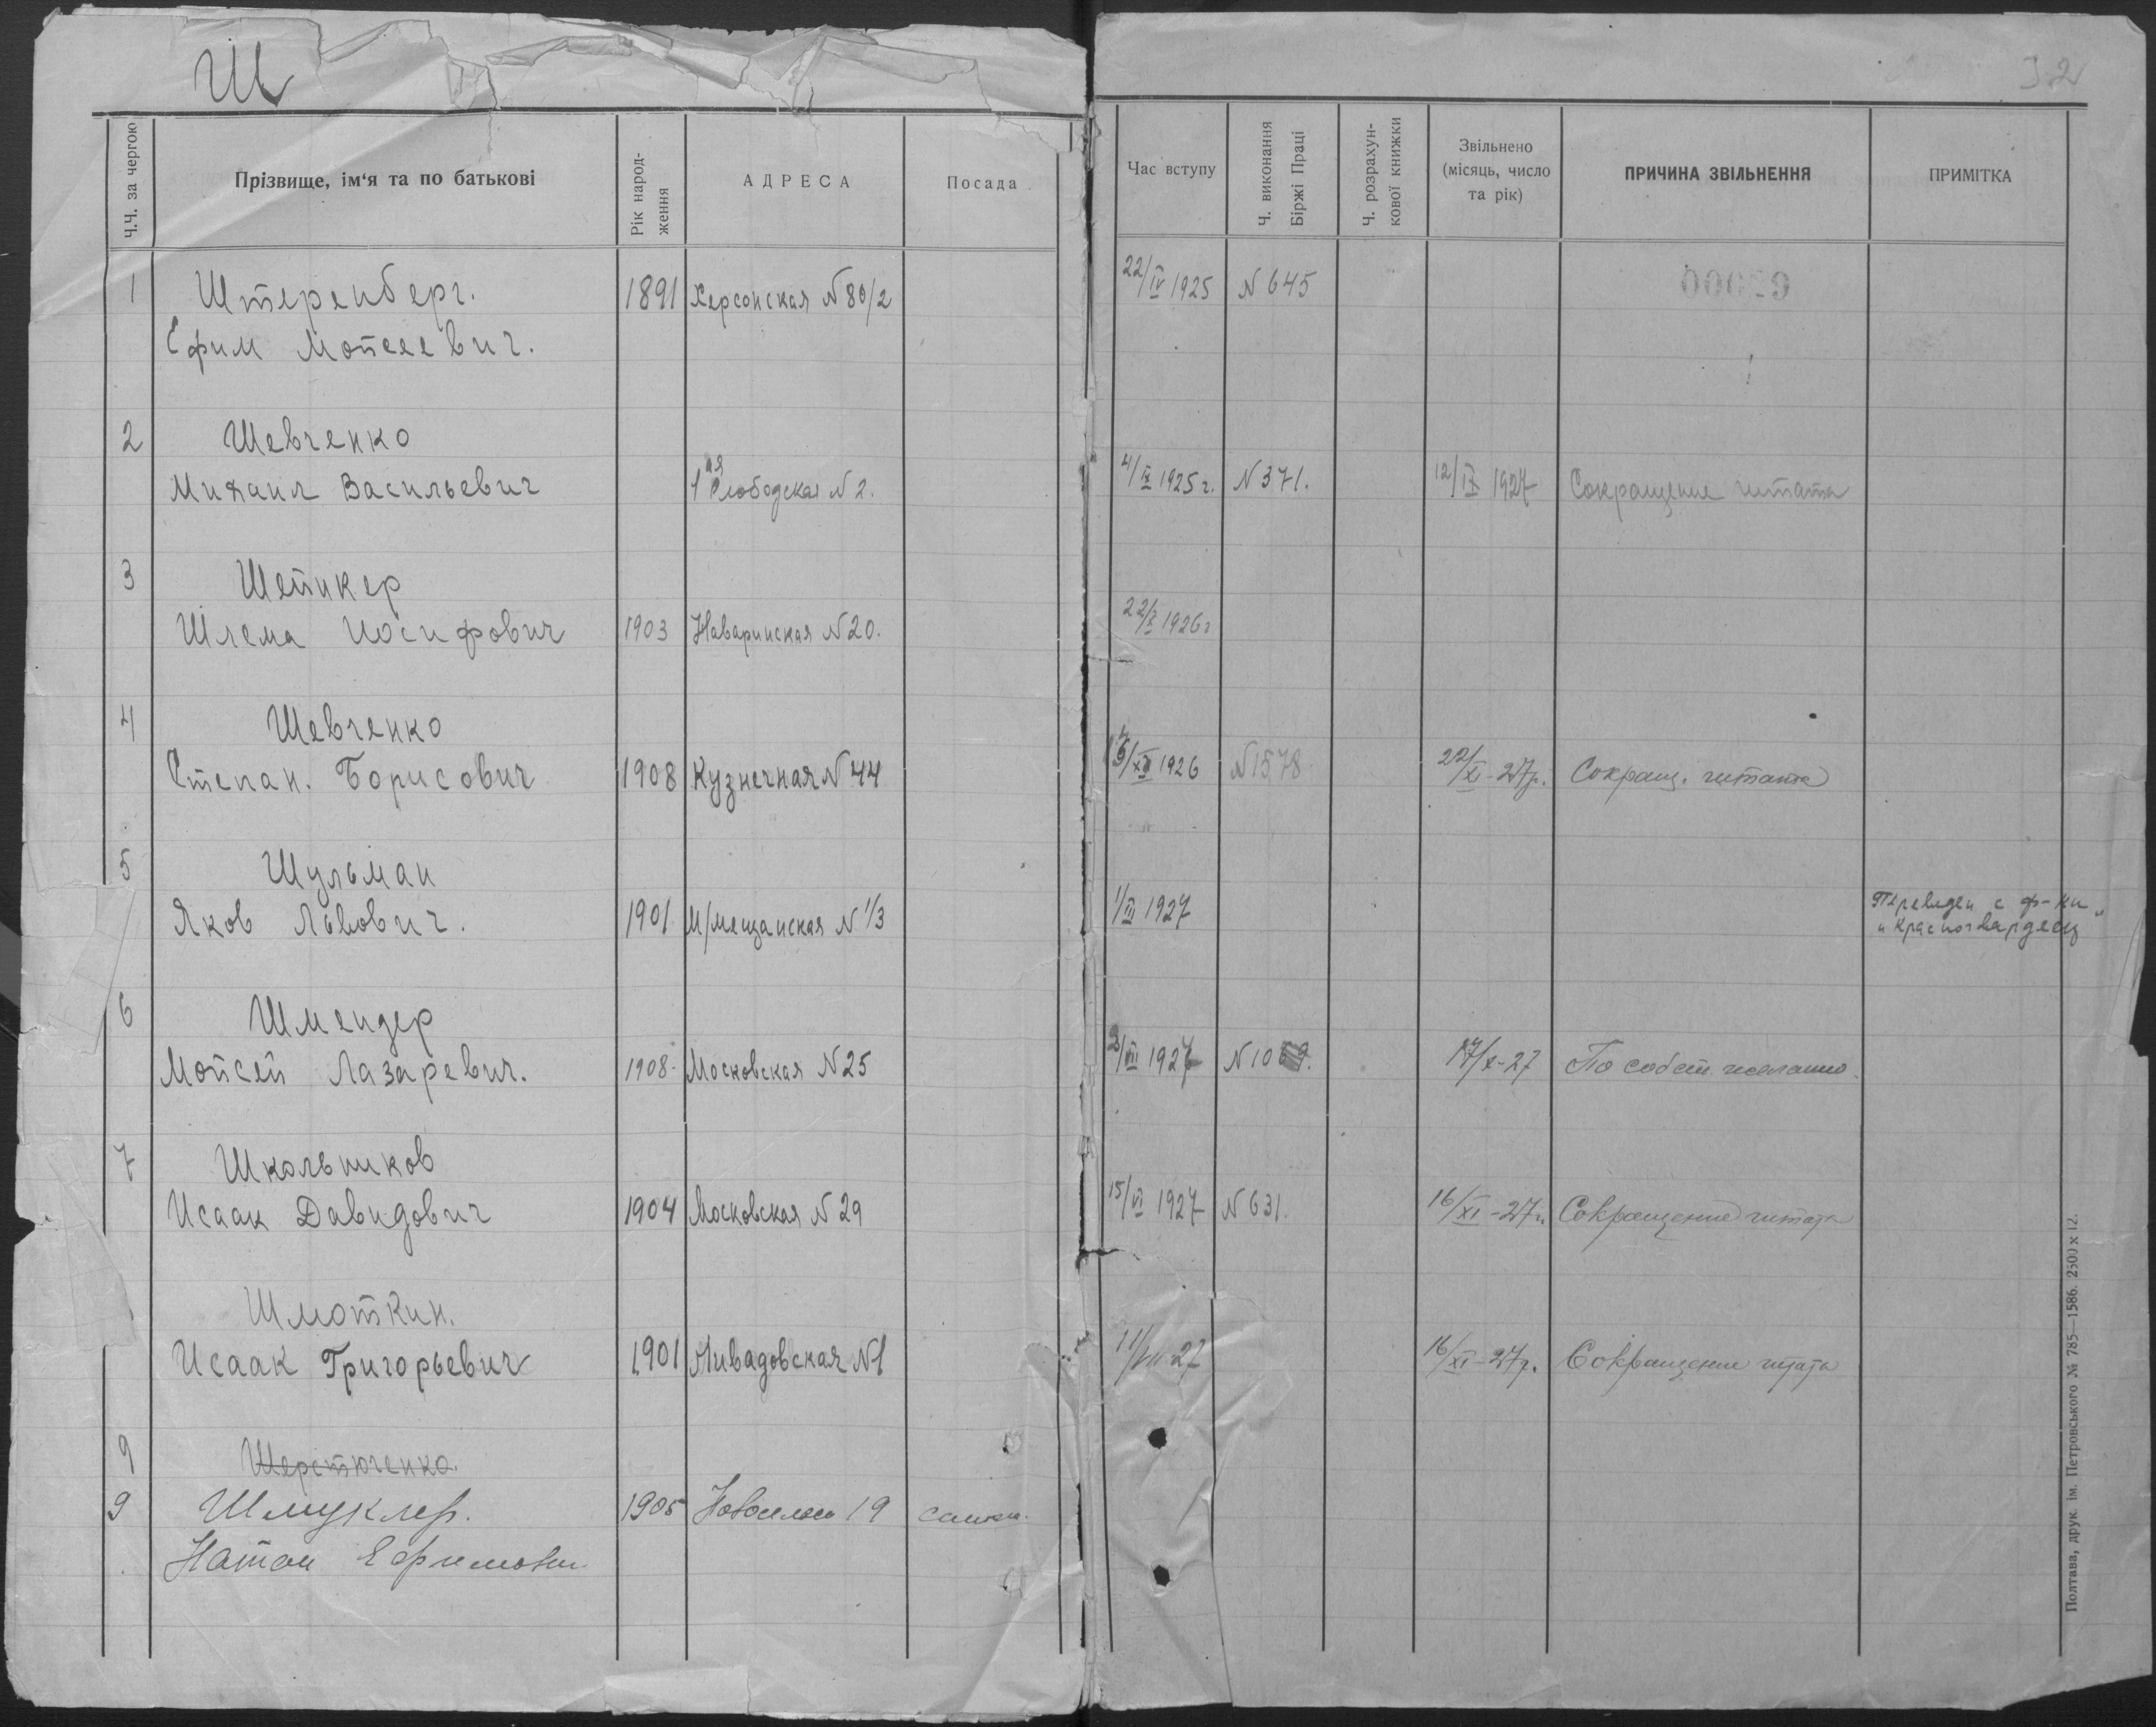 Ш
32
Ч.Ч. за чергою
Прізвище, ім‘я та по батькові
Рік народ-
ження
АДРЕСА
Посада
Час вступу
Ч. виконання
Біржі Праці
Ч. розрахун-
кової книжки
Звільнено
(місяць, число
та рік)
ПРИЧИНА ЗВІЛЬНЕННЯ
ПРИМІТКА
1 Штеренберг. 1891 Херсонская N 80/2 22/IV 1925 N 645
Ефим Мойсеевич.
2 Шевченко
Михаил Васильевич 1ая Слободская N 2. 4/IX 1925 г. N 371. 12/IX 1927 Сокращение штата
3 Шейнкер
Шлема Иосифович 1903 Наваринская N 20. 22/X 1926 г
4 Шевченко
Степан. Борисович 1908 Кузнечная N 44 1926 N 1578 22/XI-27г. Сокращ. штата
5 Шульман
Яков Львович. 1901 М/мещанская N 1/3 1/III 1927 Переведен с ф-ки
„Красногвардеец"
6 Шмендер
Мойсей Лазаревич. 1908 Московская N 25 /VII 1927 17/X-27 По собст. желанию.
7 Школьников
Исаак Давидович 1904 Московская N 29 15/VI 1927 N 631. 16/XI-27г. Сокращение штата
Шмоткин.
Исаак Григорьевич 1901 Ливадовская N 1 11/VII 27 16/XI-27г. Сокращение штата
9 Шерстюченко.
9 Шмуклер. 1905 19
Натан Ефимович
Полтава, друк. ім. Петровського № 785—1586. 2500 x 12.